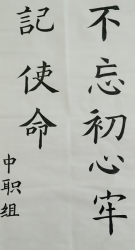 不忘初心牢
記使命
中职组